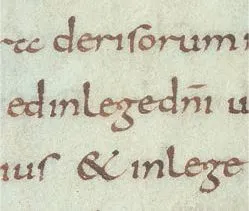 ra derisorum
edinlegedn̄i u
ius & inlege